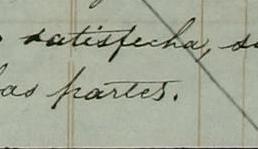 satisfecha,
las partes.